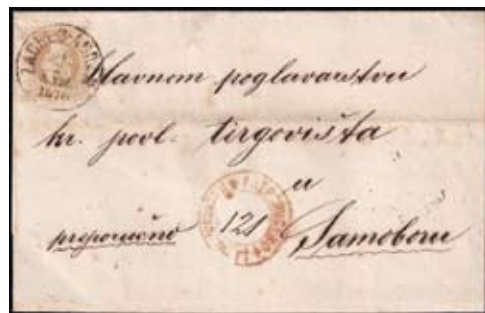 Slavnom poglavarstvu
kr. povl. tergovišta
u
preporučno 121 Samoboru